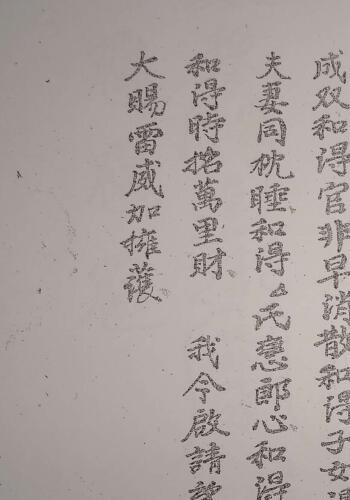 成双和得官非早消散和得子女
夫妻同枕睡和得厶氏意郎心和得
和得時招萬里財 我今啟請
大賜雷威加擁護